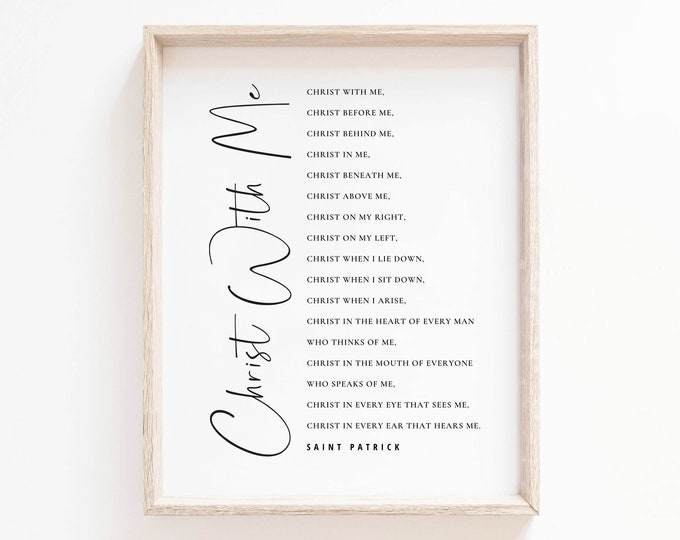 Christ With Me
CHRIST WITH ME,
CHRIST BEFORE ME,
CHRIST BEHIND ME,
CHRIST IN ME,
CHRIST BENEATH ME,
CHRIST ABOVE ME,
CHRIST ON MY RIGHT,
CHRIST ON MY LEFT,
CHRIST WHEN I LIE DOWN,
CHRIST WHEN I SIT DOWN,
CHRIST WHEN I ARISE,
CHRIST IN THE HEART OF EVERY MAN
WHO THINKS OF ME,
CHRIST IN THE MOUTH OF EVERYONE
WHO SPEAKS OF ME,
CHRIST IN EVERY EYE THAT SEES ME,
CHRIST IN EVERY EAR THAT HEARS ME.
SAINT PATRICK